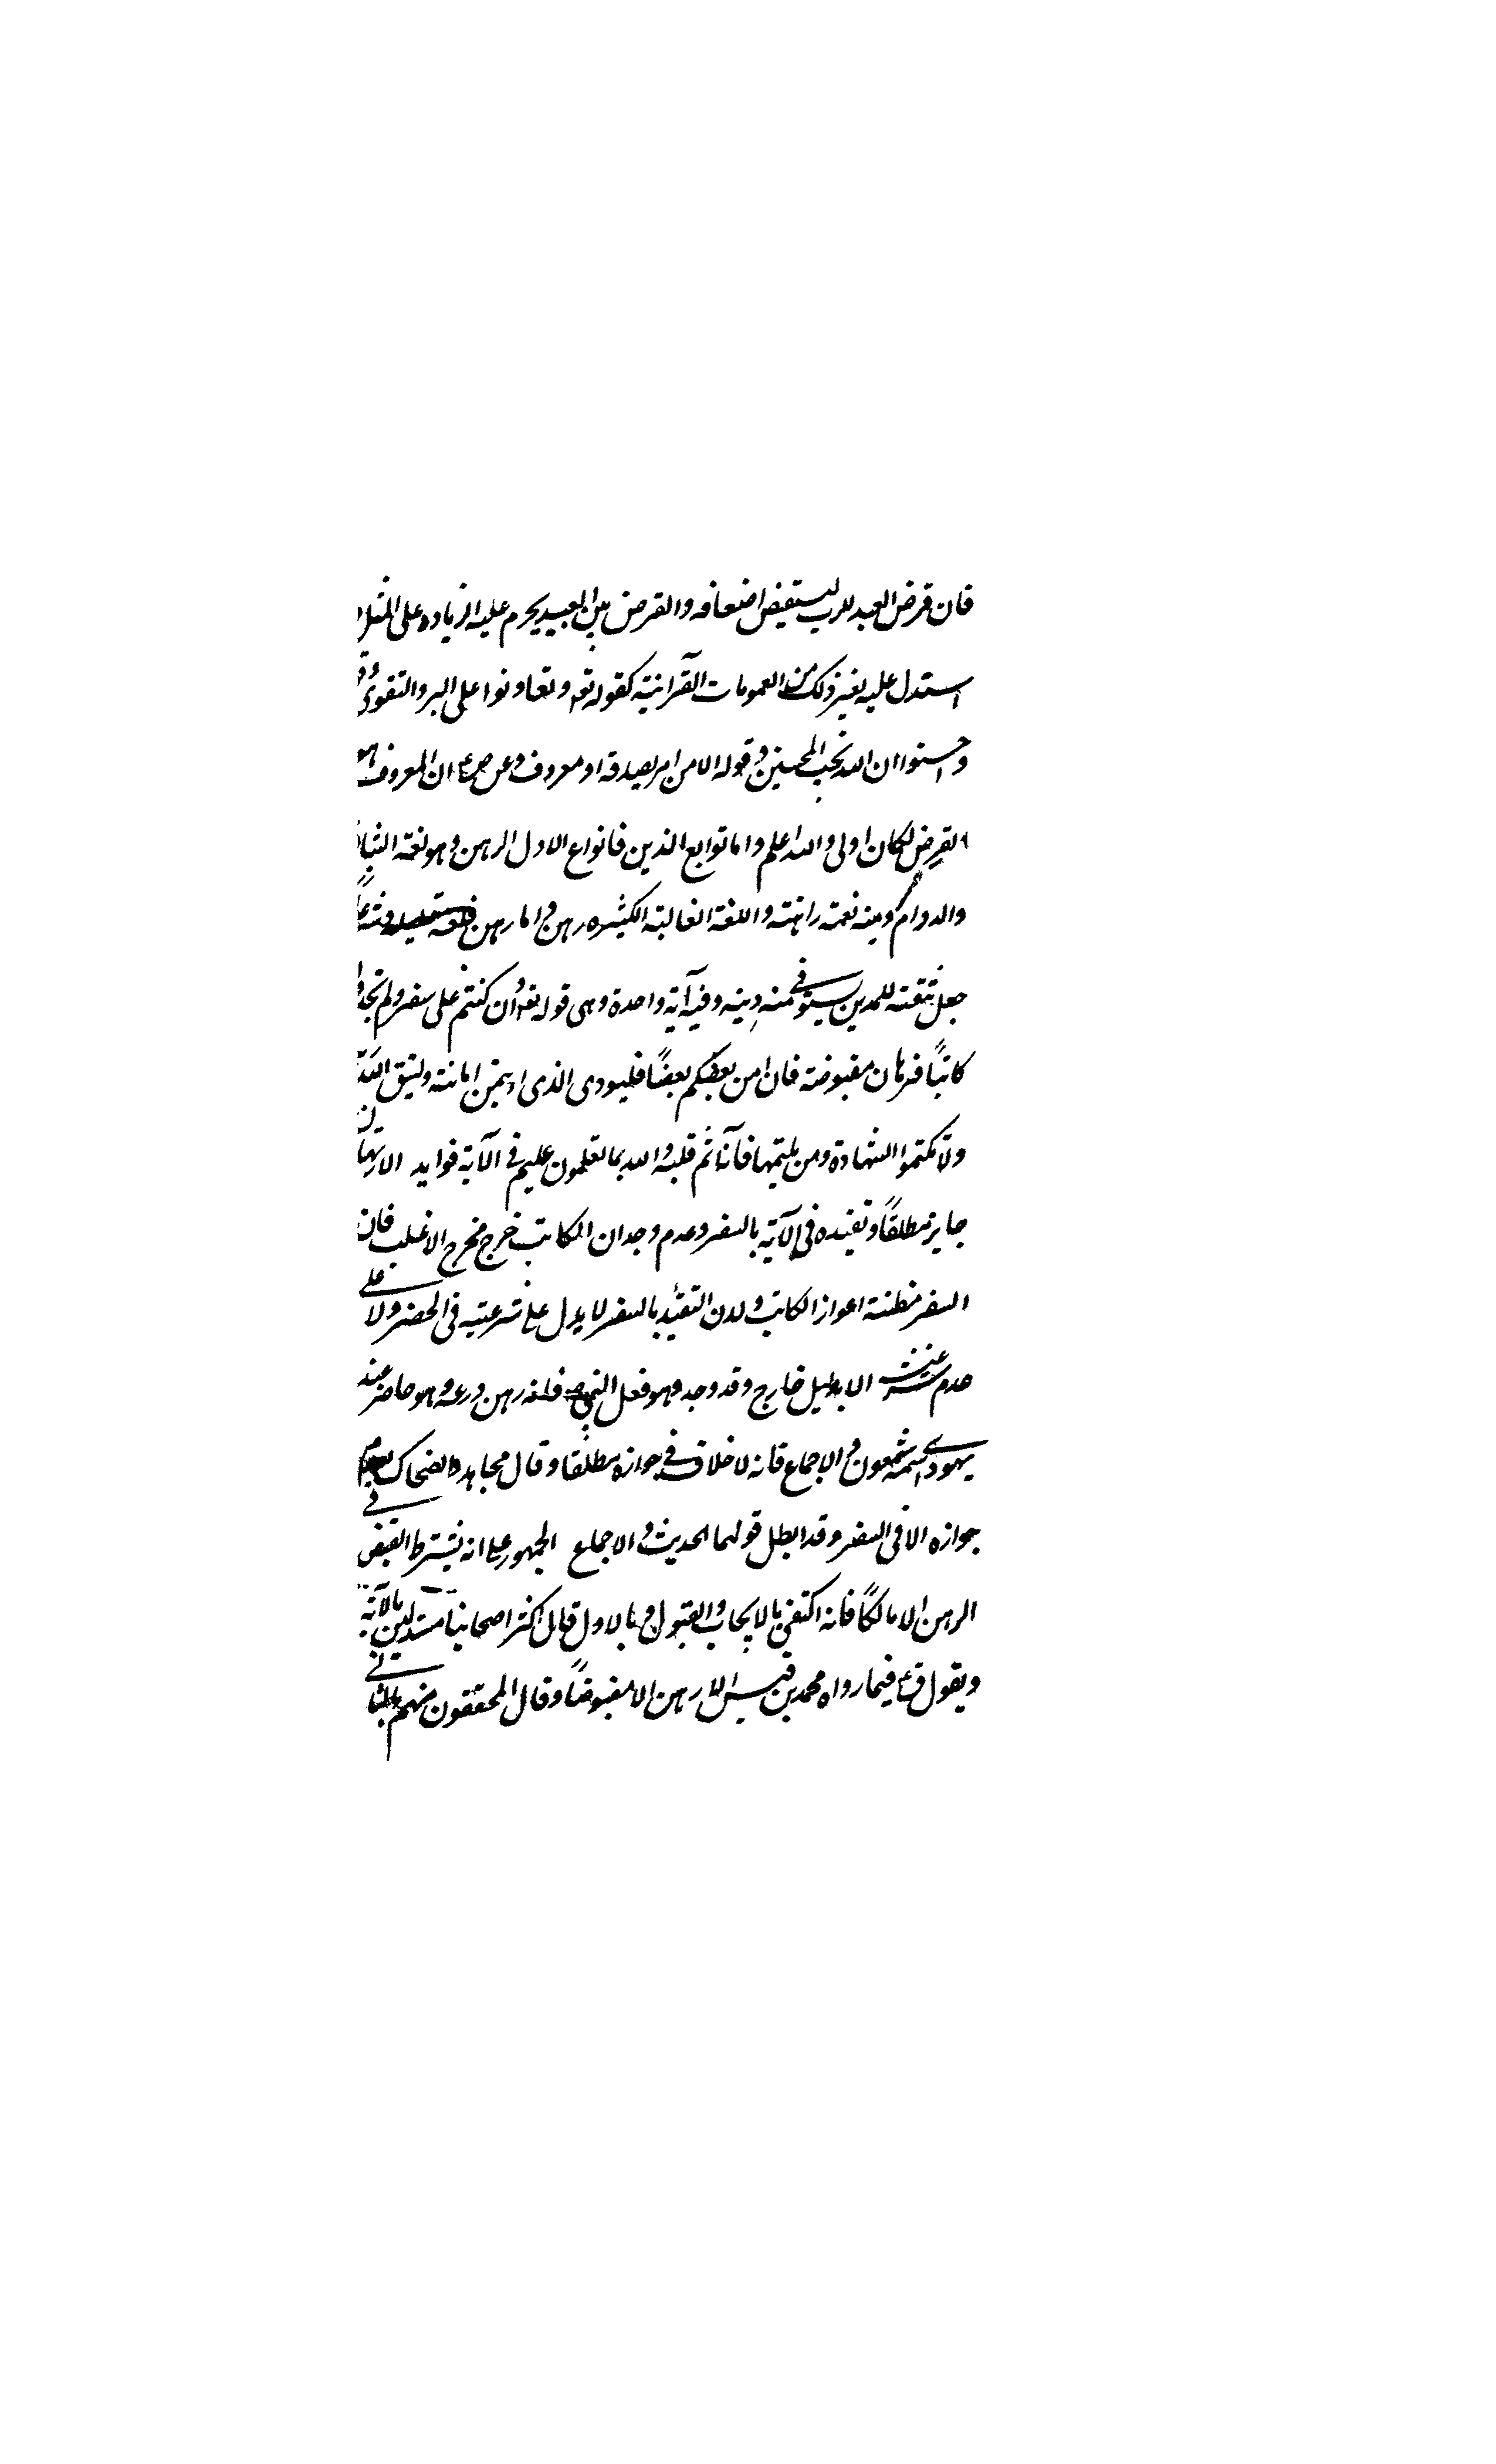 فان قرض العبد للرب ليستفيض اضعافه والقرض بين العبيد يحرم عليه الزياده على المثل
استدل عليه بغير ذلك من العمومات القرآنية كقوله تع وتعاونوا على البر والتقوى و
واحسنوا ان الله يحب المحسنين وقوله الا من امر بصدقة او معروف وعن ص ع ان المعروف هو
القرض لكان اولى والله اعلم واما توابع الدين فانواع الاول الرهن وهو لغة الثبات
والدوام ومنه نعمة راهنة واللغة الغالبة الكثيره رهن واما ارهن فلغة
جعل ثقة للدين يستوفى منه دينه وفيه آية واحدة وهى قوله تع وان كنتم على سفر ولم تجدوا
كاتبًا فرهان مقبوضة فان امن بعضكم بعضًا فليودى الذى اؤتمن امانته وليتق الله
ولا تكتموا الشهادة ومن يكتمها فانه آثم قلبه والله بما تعلمون عليم فى الآية فوايد الارتهان
جايز مطلقًا وتقيده فى الآية بالسفر وعدم وجدان الكاتب خرج مخرج الاغلب فان
السفر مظنة اعواز الكاتب ولان التقيد بالسفر لا يدل على شرعيته فى الحضر ولا على
عدم شرعيته الا بدليل خارج وقد وجد وهو فعل النبى ص فانه رهن درعه وهو حاضر عند
يهودى اسمه شمعون والاجماع فانه لا خلاف فى جوازه مطلقا وقال مجاهد والضحاك بعدم
جوازه الا فى السفر وقد ابطل قولهما الحديث والاجماع الجمهور على انه يشترط القبض فى
الرهن الا مالكًا فانه اكتفى بالايجاب والقبول وبالاول قال اكثر اصحابنا مستدلين بالآية
وبقول ق ع فيما رواه محمد بن قيس لا رهن الا مقبوضًا وقال المحققون منهم بالثانى